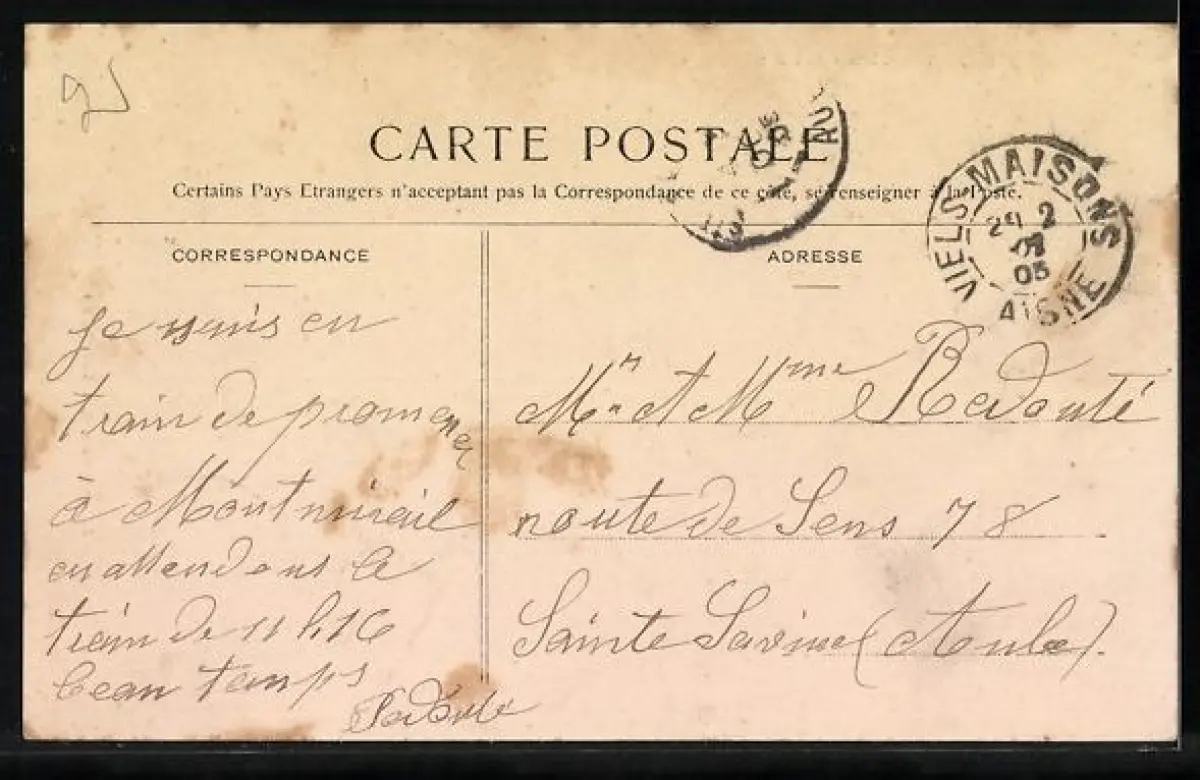 CARTE POSTALE
Certains Pays Etrangers n'acceptant pas la Correspondance de ce côté, se renseigner à la Poste.
CORRESPONDANCE
ADRESSE
VIELS MAISONS
29 2
05
AISNE
Je suis en
train de promener
à Montmirail
en attendans le
train de 11 h. 16
beau temps
Redouté
Mr et Mme Redouté
route de Sens 78
Sainte Savine (Aube).